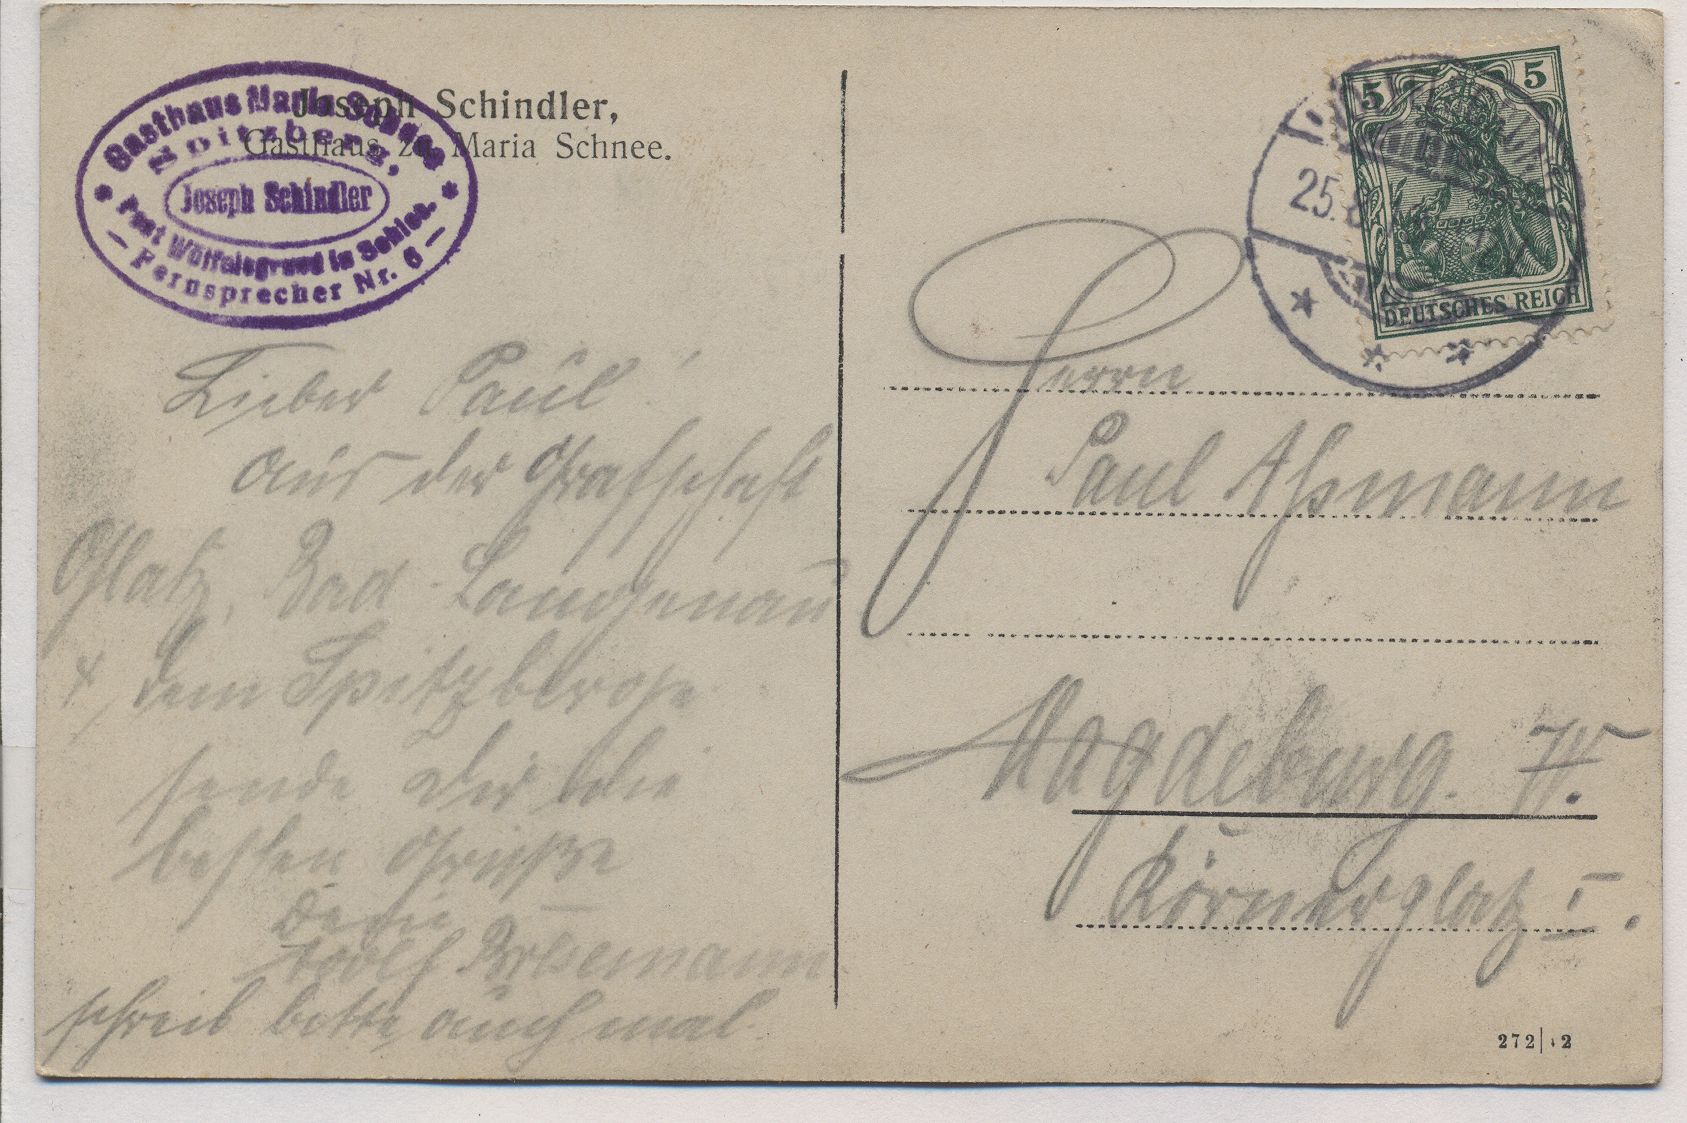 Joseph Schindler,
Gasthaus zu Maria Schnee.
Gasthaus Maria Schnee
Spitzberg,
Joseph Schindler
Post Wölfelsgrund in Schles.
Fernsprecher Nr. 6
Lieber Paul!
Aus der Grafschaft
Glatz, Bad-Langenau
+ dem Spitzberge
sende Dir die
besten Grüße
Dein
Adolf
schreib bitte auch mal.
5 5
DEUTSCHES REICH
25.8
Herrn
Paul Aßmann
Magdeburg. W.
Körnerplatz I.
272